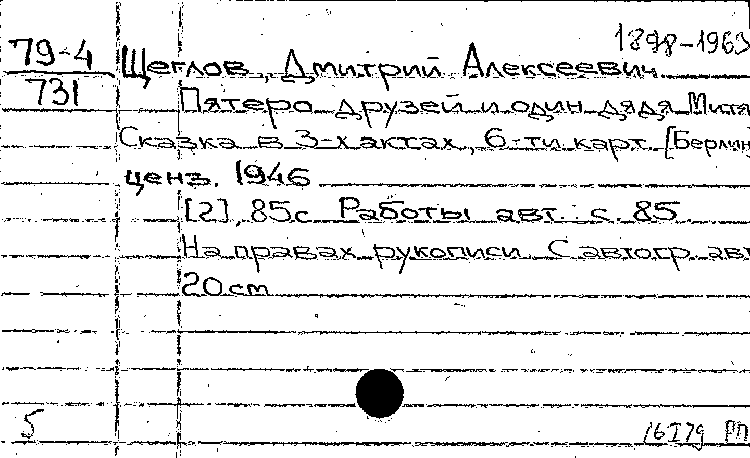 1898-1963
79-4 Щеглов, Дмитрий Алексеевич
731 Пятеро друзей и один дядя Митя
Сказка в 3-х актах, 6-ти карт. [Берлин
ценз. 1946
[2], 85с Работы авт.: с. 85
На правах рукописи. С автогр. авт
20 cm
5 16 I 79 РП